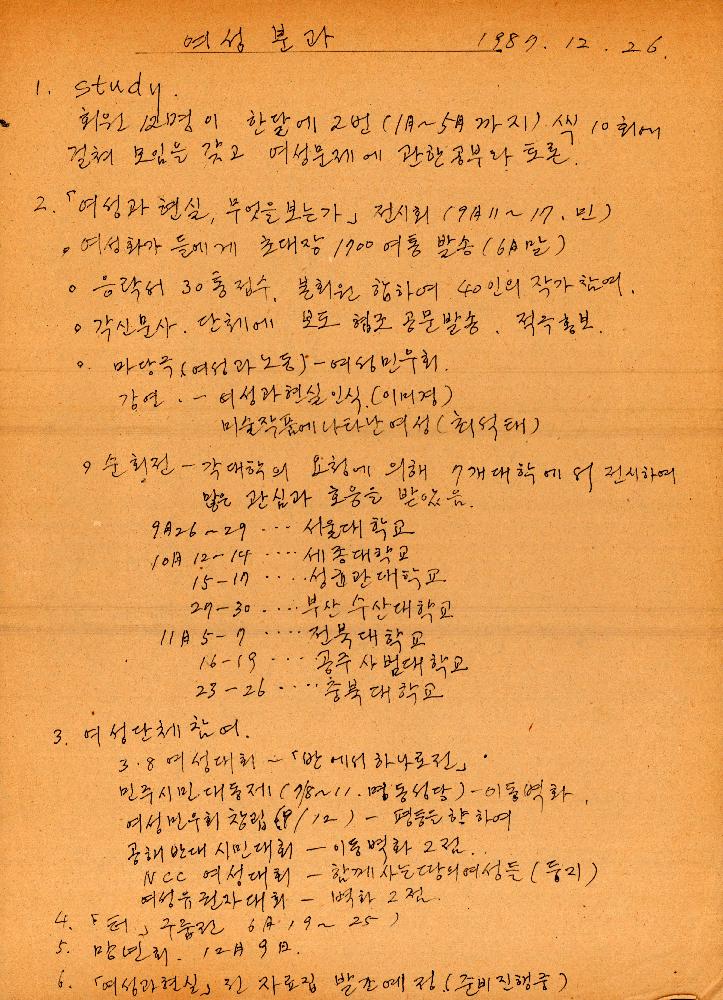 여성 분과 1987. 12. 26.
1. study.
회원 12명이 한달에 2번 (1月~5月 까지) 씩 10회에
걸쳐 모임을 갖고 여성문제에 관한 공부와 토론.
2. 「여성과 현실, 무엇을 보는가」 전시회 (9月 11~17. 민)
• 여성화가 들에게 초대장 1700여통 발송 (6月 말)
• 응락서 30통 접수, 본회원 합하여 40인의 작가 참여.
• 각 신문사. 단체에 보도 협조 공문발송. 적극 홍보.
• 마당극 (여성과 노동) - 여성민우회.
강연. - 여성과 현실인식. (이미경)
미술작품에 나타난 여성 (최석태)
• 순회전 - 각 대학의 요청에 의해 7개 대학에서 전시하여
많은 관심과 호응을 받았음.
9月 26~29 ···· 서울대학교
10月 12-14 ···· 세종대학교
15-17 ···· 성균관대학교
27-30 ···· 부산 수산대학교
11月 5-7 ···· 전북대학교
16-19 ···· 공주 사범대학교
23-26 ···· 충북대학교
3. 여성단체 참여.
3·8 여성대회 ~ 「반에서 하나로전」.
민주시민 대동제 (7/8~11. 명동성당) - 이동벽화,
여성민우회 창립 (9/12) - 평등을 향하여
공해 반대 시민대회 - 이동벽화 2점..
NCC 여성대회 - 함께 사는 땅의 여성들 (둥지)
여성유권자대회 - 벽화 2점.
4. 「터」 구룹전 6月 19~25)
5. 망년회. 12月 9日.
6. 「여성과 현실」 전 자료집 발간예정. (준비진행중)